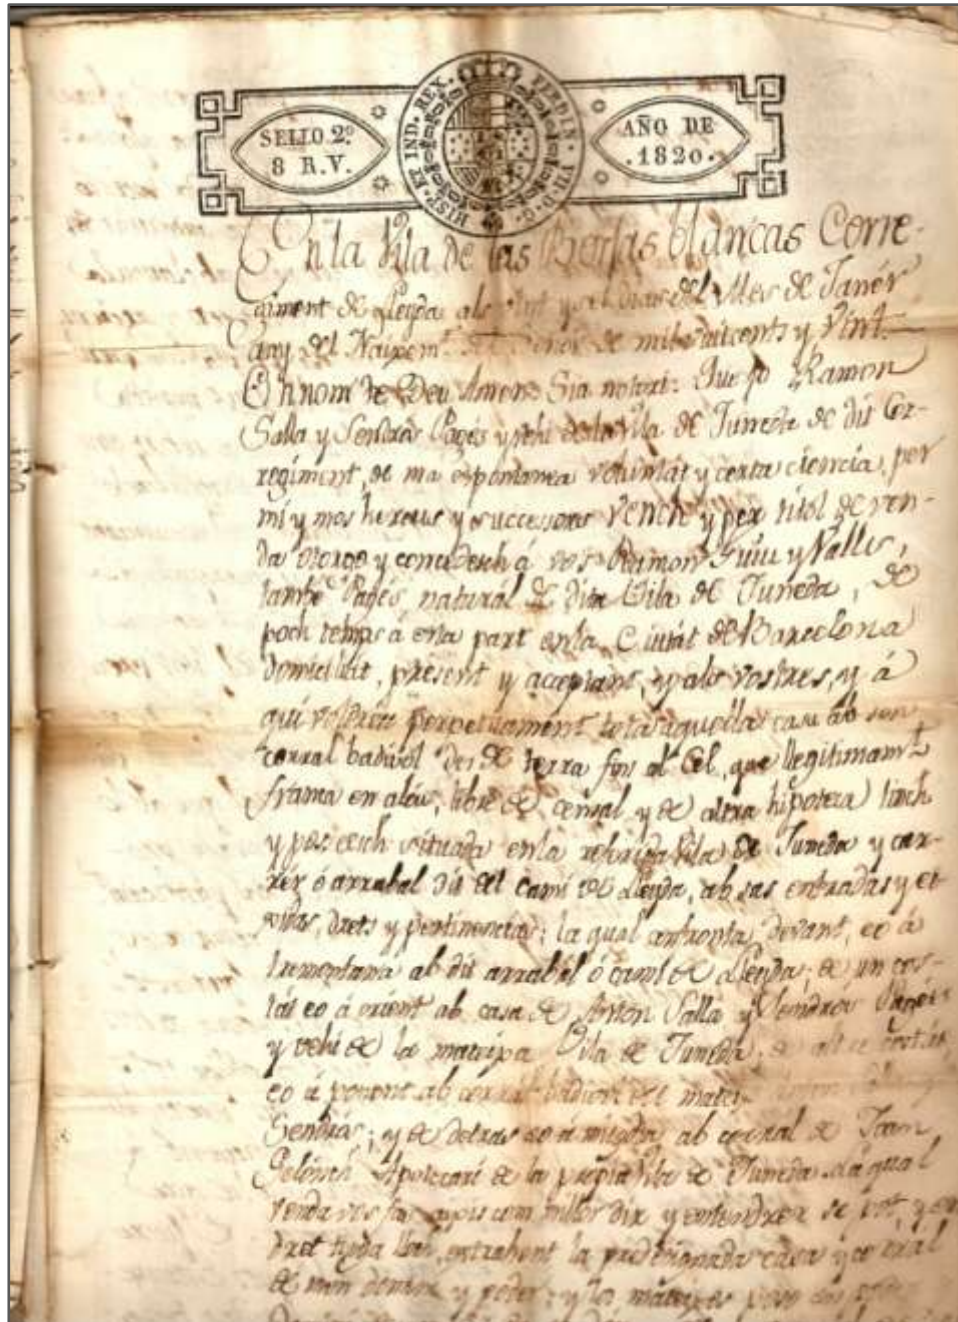 SELLO 2º
8 R.V.
HISP. ET IND. REX. FERDIN. VII. D. G.
AÑO DE
.1820.
En la Vila de las Borjas blancas Corre-
giment de Lleyda als vint y sel dias del Mes de Janér
Any del Naixemt. del Senor de mil vuitcents y vint.
En nom de Deu Amen. Sia notori: Que jo Ramon
Salla y Sendros Pagés y vehi de la Vila de Juneda de dit Cor-
regiment, de ma espontanea voluntat y certa ciencia, per
mi y mos hereus y successors Vench y per titol de ven-
da otorgo y concedesch á vos Ramon Guiu y Valls,
també Pagés, natural de dita Vila de Juneda, de
poch temps á esta part en la Ciutát de Barcelona
domiciliat, present y aceptant, y als vostres, y á
qui voldreu perpetuament tota aquella casa ab son
corral badivol des de terra fins al Cel, que llegitimamt.
franca en alou, libre de censal y de altra hipoteca tinch
y pocceesch situada en la referida Vila de Juneda y car-
rer ó arrabal dit del Camí de Lleyda, ab sas entradas y ex-
idas, drets y pertinencias; la qual afronta devant, eo á
tramontana ab dit arrabal ó camí de Lleyda; de un cos-
tát eo á orient ab casa de Anton Salla y Sendros Pagés
y vehi de la mateixa Vila de Juneda; de altre costát,
eo á ponent ab corral badivol del mateix
Sendros; y de detras eo á mitgdia ab corral de Joan
Apotecari de la propia Vila de Juneda. La qual
venda vos fas aixis com millor dir y entendrer se pot, y en
dret tinga lloch, extrahent la predesignada casa y corral
de mon domini y poder; y los mateixos poso